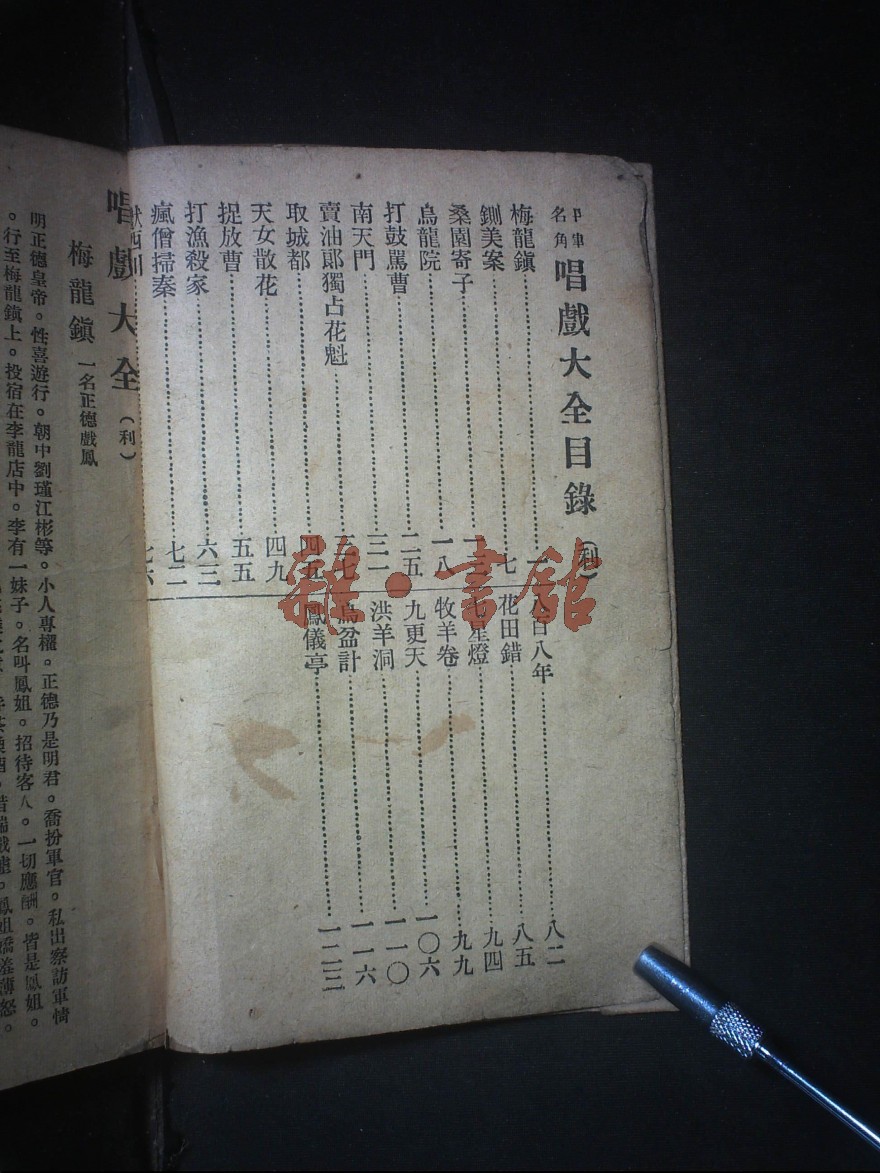 名角
唱戲大全目錄（利）
梅龍鎭……一
鍘美案……七
桑園寄子……
烏龍院……一八
打鼓罵曹……二五
南天門……三一
賣油郞獨占花魁……三七
取城都……四五
天女散花……四九
捉放曹……五五
打漁殺家……六三
瘋僧掃秦……七二
七六
八百八年……八二
花田錯……八五
七星燈……九四
牧羊卷……九九
九更天……一〇六
洪羊洞……一一〇
烏盆計……一一六
鳳儀亭……一二三
唱戲大全（利）
梅龍鎭 一名正德戲鳳
明正德皇帝。性喜遊行。朝中劉瑾江彬等。小人專權。正德乃是明君。喬扮軍官。私出察訪軍情
。行至梅龍鎭上。投宿在李龍店中。李有一妹子。名叫鳳姐。招待客人。一切應酬。皆是鳳姐。
鳳姐嬌羞薄怒。
雜·書館